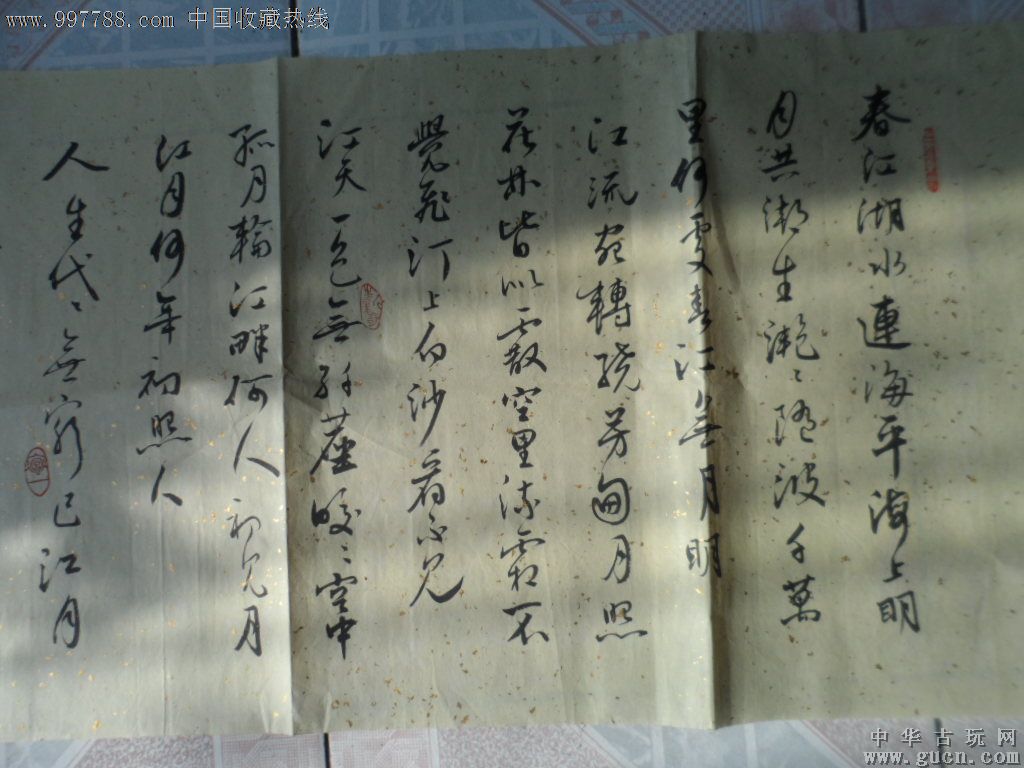 www.997788.com 中国收藏热线
春江湖水連海平海上明
月共潮生灔〻隨波千萬
里何處春江無月明
江流宛轉繞芳甸月照
花林皆似霰空里流霜不
覺飛汀上白沙看不見
江天一色無纤塵皎〻空中
孤月輪江畔何人初見月
江月何年初照人
人生代〻無窮已江月
中华古玩网
www.gucn.com